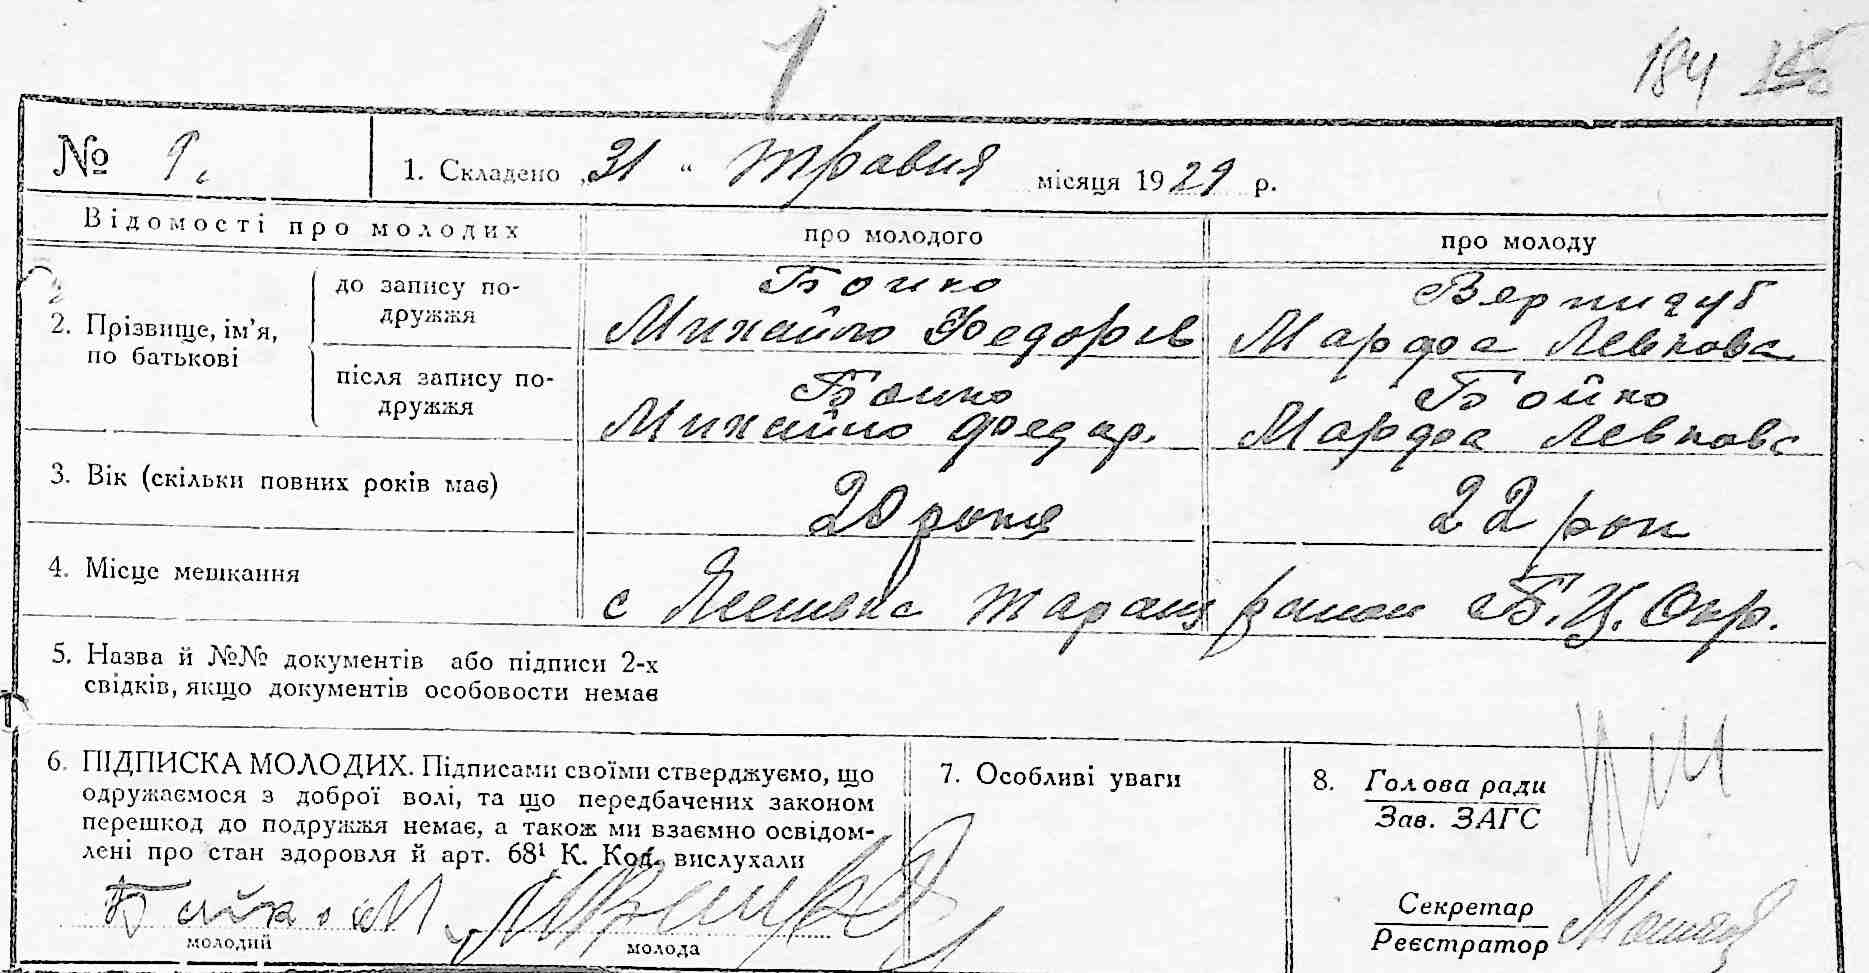 1
184
№ 9.
1. Складено „31“ травня місяця 1929 р.
Відомості про молодих
про молодого
про молоду
2. Прізвище, ім’я,
по батькові
до запису по-
дружжя
Бойко
Михайло Федорів
Вернигуб
Марфа Левкова
після запису по-
дружжя
Бойко
Михайло Федор.
Бойко
Марфа Левкова
3. Вік (скільки повних років має)
20 років
22 рок
4. Місце мешкання
с Таращ району Б.Ц. Окр.
5. Назва й №№ документів або підписи 2-х
свідків, якщо документів особовости немає
6. ПІДПИСКА МОЛОДИХ. Підписами своїми стверджуємо, що
одружаємося з доброї волі, та що передбачених законом
перешкод до подружжя немає, а також ми взаємно освідом-
лені про стан здоровля й арт. 68¹ К. Код. вислухали
Бойко М
молодий
молода
7. Особливі уваги
8. Голова ради
Зав. ЗАГС
Секретар
Реєстратор